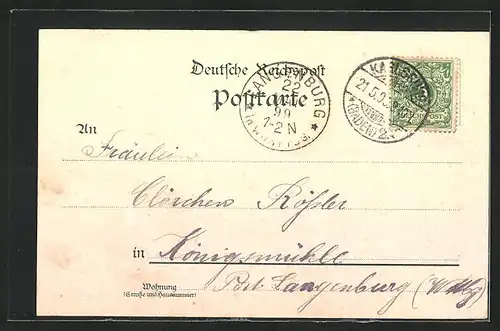 Deutsche Reichspost
Postkarte
LANGENBURG
22
99
7-2 N
KARLSRUHE
21.5.
(BADEN) 2
An
Fräulein
Clärchen Rößler
in Königsmühle
Wohnung
(Straße und Hausnummer)
Post Langenburg (Wttbg)